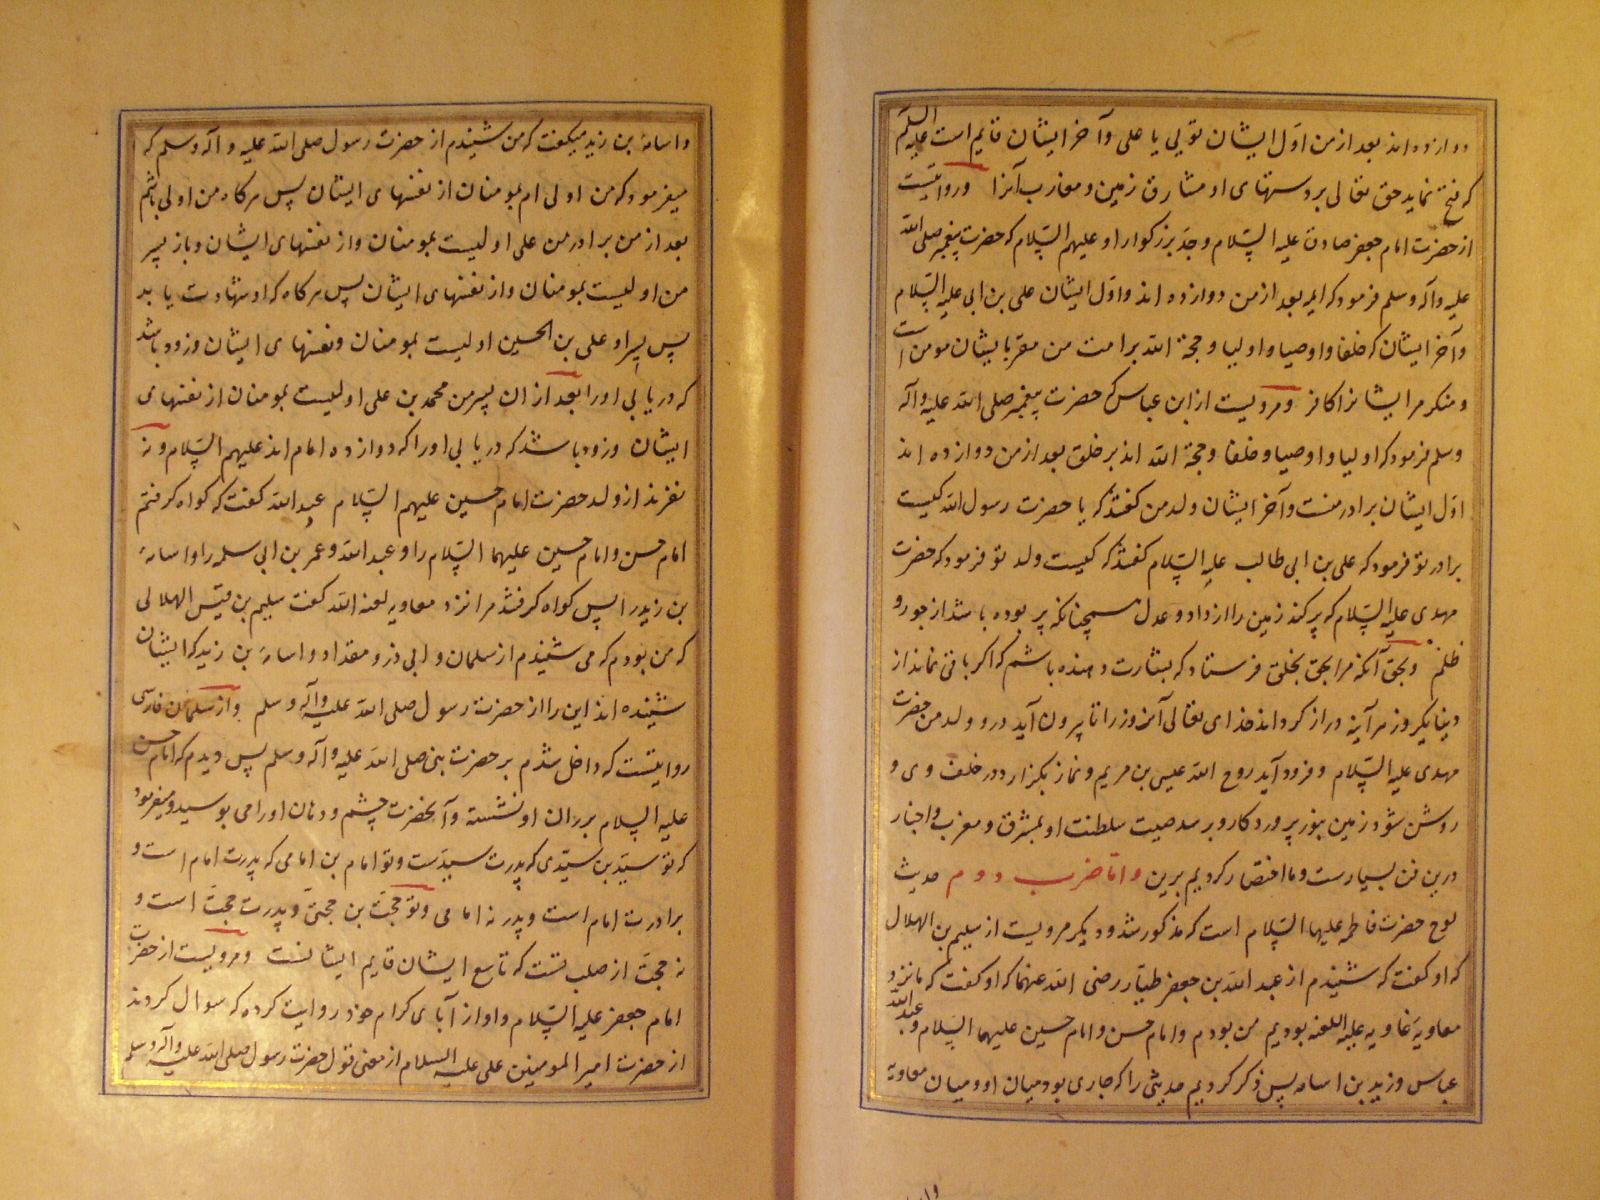 دوازده اند بعد از من اول ایشان تویی یا علی و آخر ایشان قایم است علیه السلم
که فتح نماید حق تعالی بر دستهای او مشارق زمین و مغارب آنرا و روایتست
از حضرت امام جعفر صادق علیه السّلام و جدّ بزرکوار او علیهم السّلام که حضرت پیغمبر صلی الله
علیه و آله وسلم فرمود که ایمه بعد از من دوازده اند و اوّل ایشان علی بن ابی علیه السّلام
و آخر ایشان که خلفا و اوصیا و اولیا و حجة الله بر امت من مقرّ بایشان مومن است
و منکر مر ایشانرا کافر و مرویست از ابن عباس که حضرت پیغمبر صلی الله علیه و آله
وسلم فرمود که اولیا و اوصیا و خلفا و حجة الله اند بر خلق بعد از من دوازده اند
اوّل ایشان برادر منست و آخر ایشان ولد من کفتند که یا حضرت رسول الله کیست
برادر تو فرمود که علی بن ابی طالب علیه السّلام کفتند که کیست ولد تو فرمود که حضرت
مهدی علیه السّلام که پر کند زمین را از داد و عدل همچنانکه پر بوده باشد از جور و
ظلم و بحق آنکه مرا بحق بخلق فرستاد که بشارت دهنده باشم که اکر باقی نماند از
دنیا یکروز هر آینه دراز کرداند خدای تعالی آنروز را تا بیرون آید درو ولد من حضرت
مهدی علیه السّلام و فرود آید روح الله عیسی بن مریم و نماز بکزارد در خلف وی و
روشن شود زمین بنور پروردکار و برسد صیت سلطنت او بمشرق و مغرب و اخبار
درین فن بسیارست و ما اختصار کردیم برین و امّا ضرب دوم حدیث
لوح حضرت فاطمه علیها السّلام است که مذکور شد و دیکر مرویست از سلیم بن الهلال
که او کفت که شنیدم از عبد الله بن جعفر طیّار رضی الله عنهما که او کفت که ما نزد
معاویهٔ غاویه علیه اللعنه بودیم من بودم و امام حسن و امام حسین علیهما السّلام و عبد الله
عباس و زید بن اسامه پس ذکر کردیم حدیثی را که جاری بود میان او و میان معاویه
و اسامهٔ بن زید میکفت که من شنیدم از حضرت رسول صلی الله علیه و آله وسلم که
میفرمود که من اولی ام بمومنان از نفسهای ایشان پس هرکاه من اولی باشم
بعد از من برادر من علی اولیست بمومنان و از نفسهای ایشان و باز پسر
من اولیست بمومنان و از نفسهای ایشان پس هرکاه که او شهادت یابد
پس پسر او علی بن الحسین اولیست بمومنان و نفسهای ایشان و زود باشد
که دریابی او را بعد از ان پسر من محمد بن علی اولیست بمومنان از نفسهای
ایشان و زود باشد که دریابی او را که دوازده امام اند علیهم السّلام و نه
نفرند از ولد حضرت امام حسین علیهم السّلام عبد الله کفت که کواه کرفتم
امام حسن و امام حسین علیهما السّلام را و عبد الله و عمر بن ابی سلمه را و اسامهٔ
بن زید را پس کواه کرفتند مرا نزد معاویه لعنه الله کفت سلیم بن قیس الهلالی
که من بودم که می شنیدم از سلمان و ابی ذر و مقداد و اسامهٔ بن زید که ایشان
شنیده اند این را از حضرت رسول صلی الله علیه و آله وسلم و از سلمان فارسی
روایتست که داخل شدم بر حضرت نبی صلی الله علیه و آله وسلم پس دیدم که امام حسن
علیه السلام بر ران او نشسته و آنحضرت چشم و دهان او را می بوسید و میفرمود
که تو سیّد بن سیّدی که پدرت سیّدست و تو امام بن امامی که پدرت امام است و
برادرت امام است و پدر نه امامی و تو حجّت بن حجّتی و پدرت حجّت است و
نه حجّت از صلب تست که تاسع ایشان قایم ایشانست و مرویست از حضرت
امام جعفر علیه السّلام و او از آبای کرام خود روایت کرده که سوال کردند
از حضرت امیر المومنین علی علیه السلام از معنی قول حضرت رسول صلی الله علیه و آله وسلم